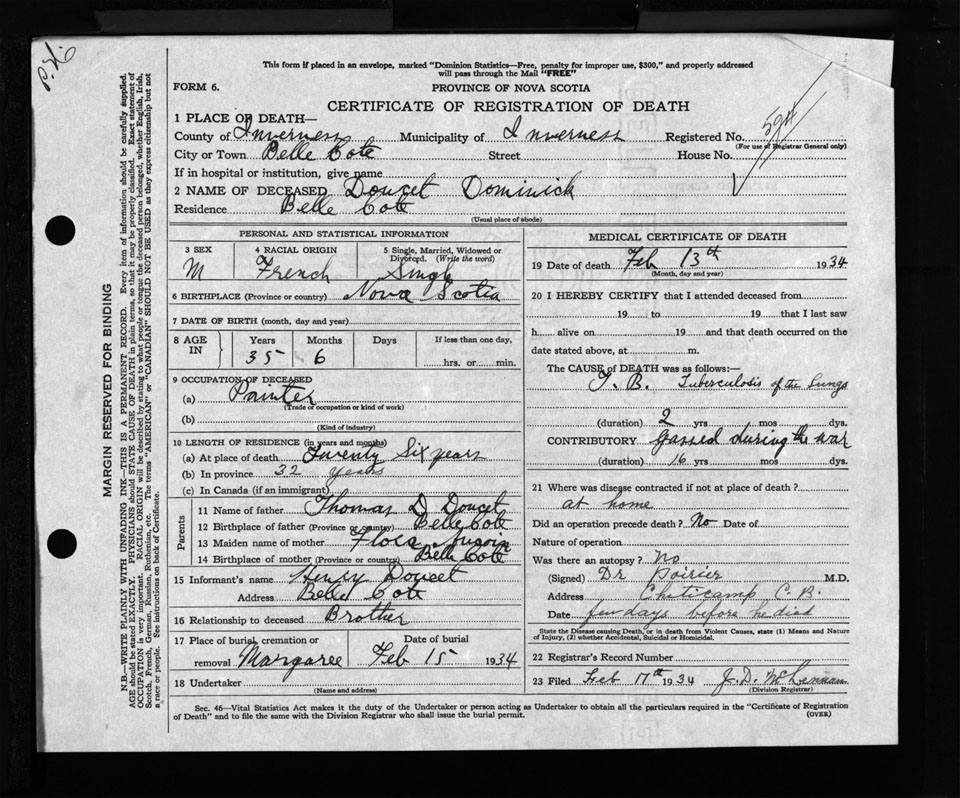 This form if placed in an envelope, marked "Dominion Statistics—Free, penalty for improper use, $300," and properly addressed
will pass through the Mail "FREE"
FORM 6.
PROVINCE OF NOVA SCOTIA
CERTIFICATE OF REGISTRATION OF DEATH
1 PLACE OF DEATH—
County of Inverness Municipality of Inverness Registered No. 594
(For use of Registrar General only)
City or Town Belle Cote Street House No.
If in hospital or institution, give name
2 NAME OF DECEASED Doucet Dominick
Residence Belle Cote
(Usual place of abode)
PERSONAL AND STATISTICAL INFORMATION
3 SEX 4 RACIAL ORIGIN 5 Single, Married, Widowed or
Divorced. (Write the word)
M French Single
6 BIRTHPLACE (Province or country) Nova Scotia
7 DATE OF BIRTH (month, day and year)
8 AGE IN Years Months Days If less than one day,
35 6 hrs. or min.
9 OCCUPATION OF DECEASED
(a) Painter
(Trade or occupation or kind of work)
(b)
(Kind of industry)
10 LENGTH OF RESIDENCE (in years and months)
(a) At place of death Twenty Six years
(b) In province 32 years
(c) In Canada (if an immigrant)
Parents
11 Name of father Thomas D Doucet
12 Birthplace of father (Province or country) Belle Cote
13 Maiden name of mother Flora
14 Birthplace of mother (Province or country) Belle Cote
15 Informant's name Henry Doucet
Address Belle Cote
16 Relationship to deceased Brother
17 Place of burial, cremation or Date of burial
removal Margaree Feb 15 1934
18 Undertaker
(Name and address)
MEDICAL CERTIFICATE OF DEATH
19 Date of death Feb 13th 1934
(Month, day and year)
20 I HEREBY CERTIFY that I attended deceased from
19 to 19 that I last saw
h alive on 19 and that death occurred on the
date stated above, at m.
The CAUSE of DEATH was as follows:—
T. B. Tuberculosis of the Lungs
(duration) 2 yrs mos dys.
CONTRIBUTORY gassed during the war
(duration) 16 yrs mos dys.
21 Where was disease contracted if not at place of death?
at home
Did an operation precede death? No Date of
Nature of operation
Was there an autopsy? No
(Signed) Dr Poirier M.D.
Address Cheticamp C. B.
Date few days before he died
State the Disease causing Death, or in death from Violent Causes, state (1) Means and Nature
of Injury, (2) whether Accidental, Suicidal or Homicidal.
22 Registrar's Record Number
23 Filed Feb 17th 1934 J. D. McLennan
(Division Registrar)
Sec. 46—Vital Statistics Act makes it the duty of the Undertaker or person acting as Undertaker to obtain all the particulars required in the "Certificate of Registration
of Death" and to file the same with the Division Registrar who shall issue the burial permit.
(OVER)
MARGIN RESERVED FOR BINDING
N.B.—WRITE PLAINLY WITH UNFADING INK—THIS IS A PERMANENT RECORD. Every item of information should be carefully supplied.
AGE should be stated EXACTLY. PHYSICIANS should STATE CAUSE OF DEATH in plain terms, so that it may be properly classified. Exact statement of
OCCUPATION is very important. RACIAL ORIGIN will be described by stating to what people or tongue the deceased person belonged, whether English, Irish,
Scotch, French, German, Russian, Ruthenian, etc. The terms "AMERICAN" or "CANADIAN" SHOULD NOT BE USED as they express citizenship but not
a race or people. See instructions on back of Certificate.